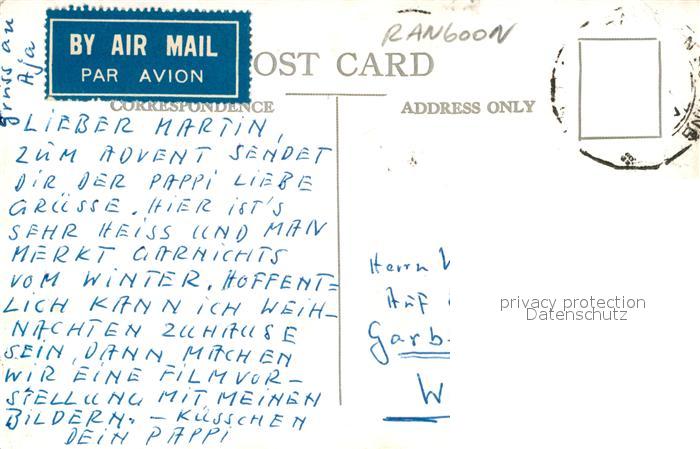 Gruss an
Aja
BY AIR MAIL
PAR AVION
RANGOON
OST CARD
CORRESPONDENCE
ADDRESS ONLY
LIEBER MARTIN,
ZUM ADVENT SENDET
DIR DER PAPPI LIEBE
GRÜSSE. HIER IST'S
SEHR HEISS UND MAN
MERKT GARNICHTS
VOM WINTER. HOFFENT=
LICH KANN ICH WEIH-
NACHTEN ZUHAUSE
SEIN, DANN MACHEN
WIR EINE FILMVOR-
STELLUNG MIT MEINEN
BILDERN. - KÜSSCHEN
DEIN PAPPI
Herrn
Auf
Garb
W
privacy protection
Datenschutz